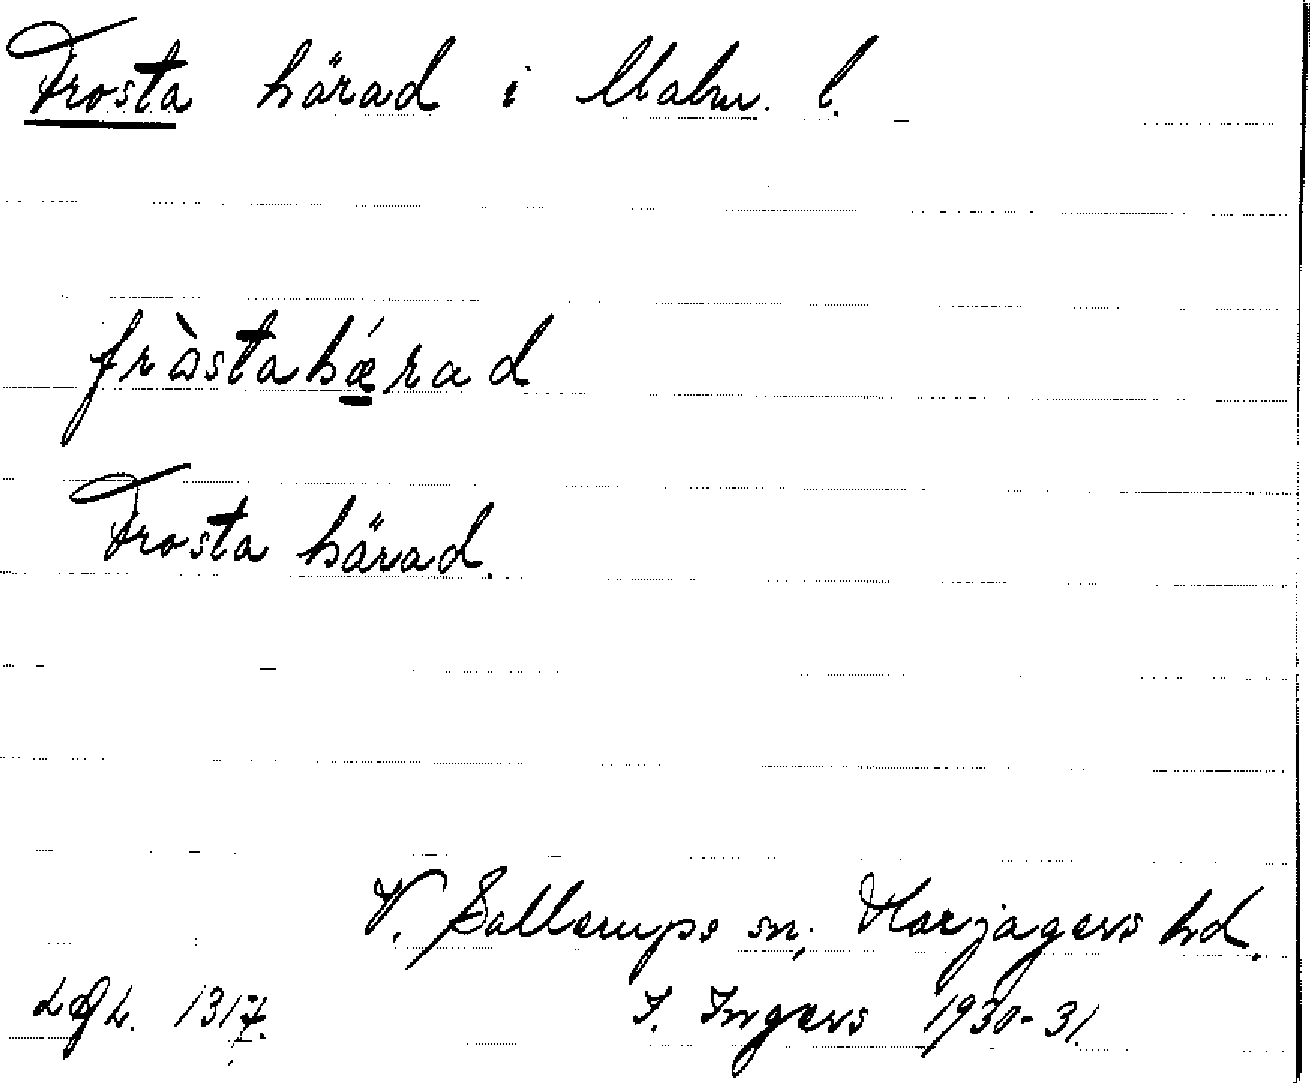 Frosta härad i Malm. l.
fròstahǽrad
Frosta härad.
V. Sallerups sn, Harjagers hd.
LGL. 1317. I. Ingers 1930-31.